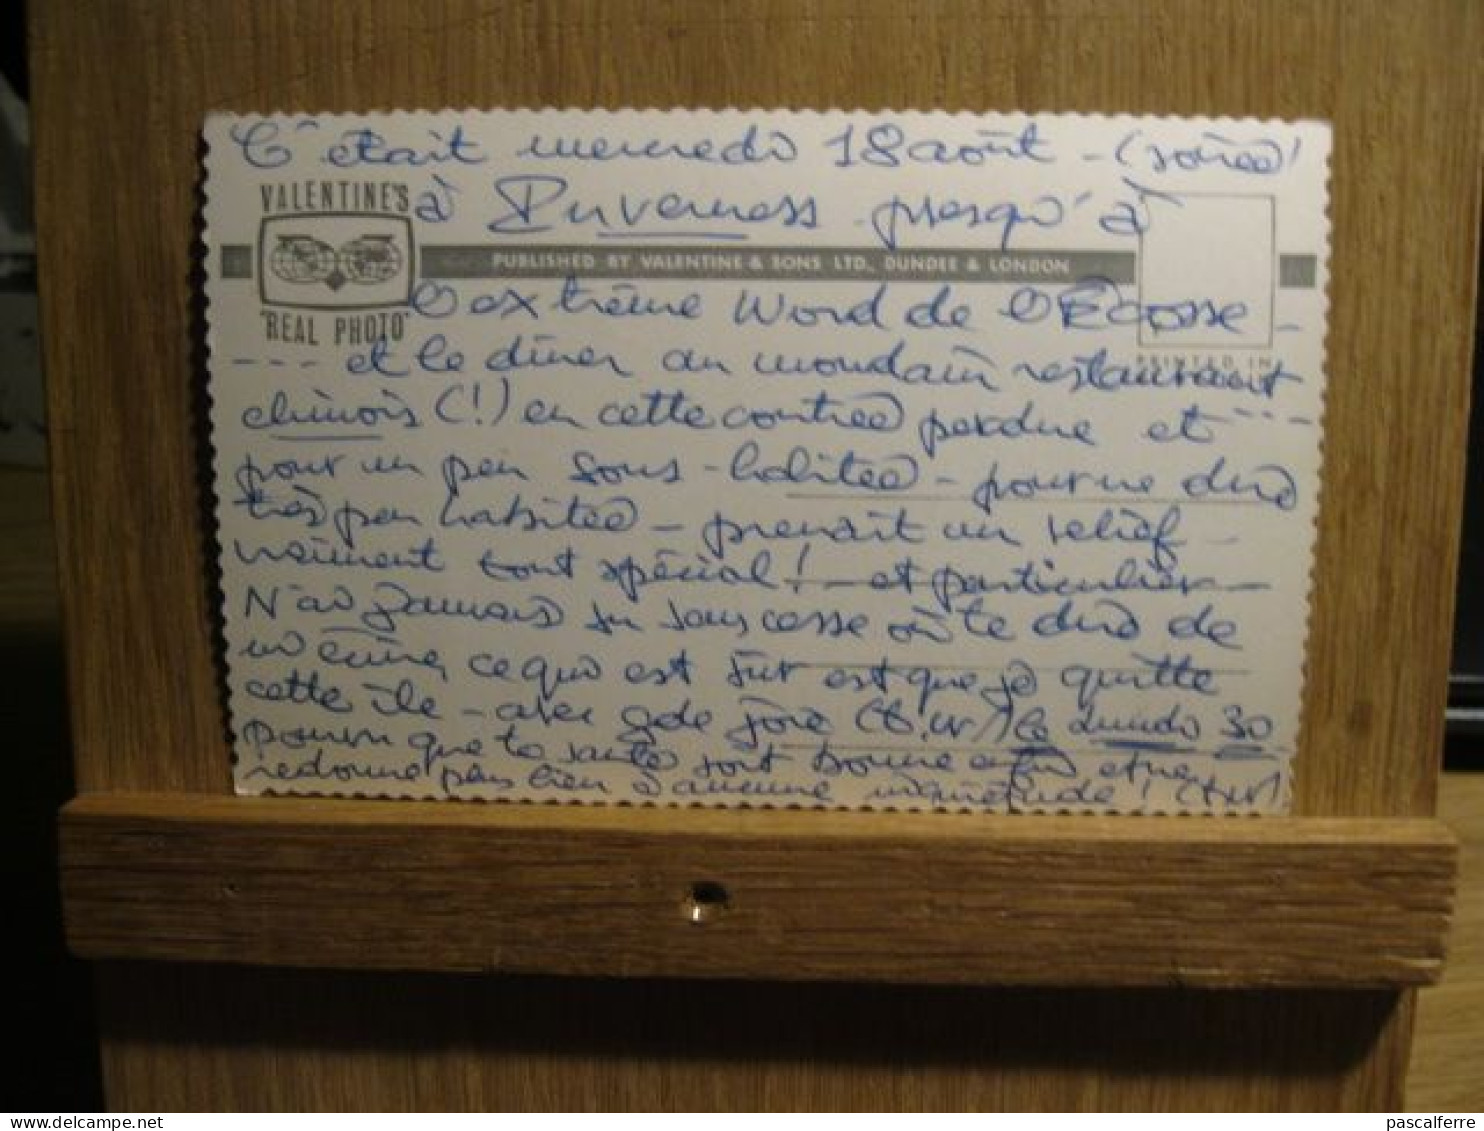 C'était mercredi 18 août - (soirée)
VALENTINE'S
à Inverness presqu'à
PUBLISHED BY VALENTINE & SONS LTD., DUNDEE & LONDON
l'extrême Nord de l'Écosse -
"REAL PHOTO"
PRINTED IN
--- et le dîner au mondain restaurant
chinois (!) en cette contrée perdue et ---
pour un peu sous-habitée - pour ne dire
très peu habitée - prenait un relief -
vraiment tout spécial! - et particulier -
N'ai jamais su sans cesse où te dire de
m'écrire, ce qui est sûr est que je quitte
cette île - avec gde joie (t.w) le lundi 30
pourvu que ta santé soit bonne enfin et ne
redonne pas lieu à aucune inquiétude!
pascalferre
delcampe.net